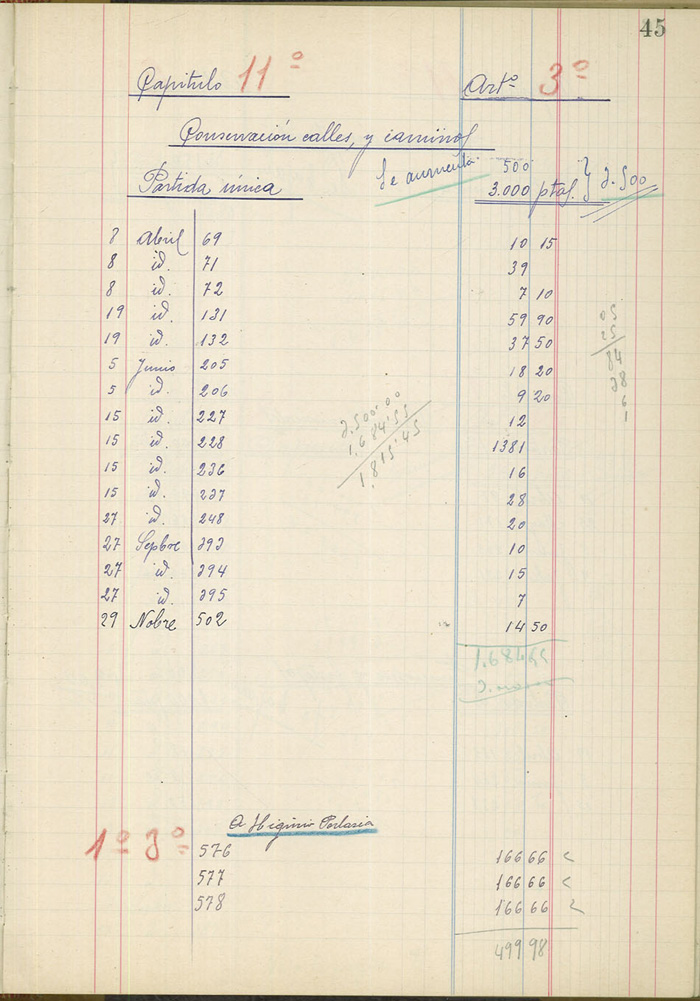 45
Capitulo 11º Artº 3º
Conservación calles, y caminos
Se aumenta 500
Partida única 3.000 ptas. } 3.500
8 Abril 69 10 15
8 id. 71 39
8 id. 72 7 10
19 id. 131 59 90
19 id. 132 37 50
5 Junio 205 18 20
5 id. 206 9 20
15 id. 227 12
15 id. 228 1381
15 id. 236 16
15 id. 237 28
27 id. 248 20
27 Sepbre 393 10
27 id. 394 15
27 id. 395 7
29 Nobre 502 14 50
3.500'00
1.684'55
1.815'45
05
25
84
38
6
1
1.684 55
A Higinio
1º 3º
576 166 66
577 166 66
578 166 66
499 98